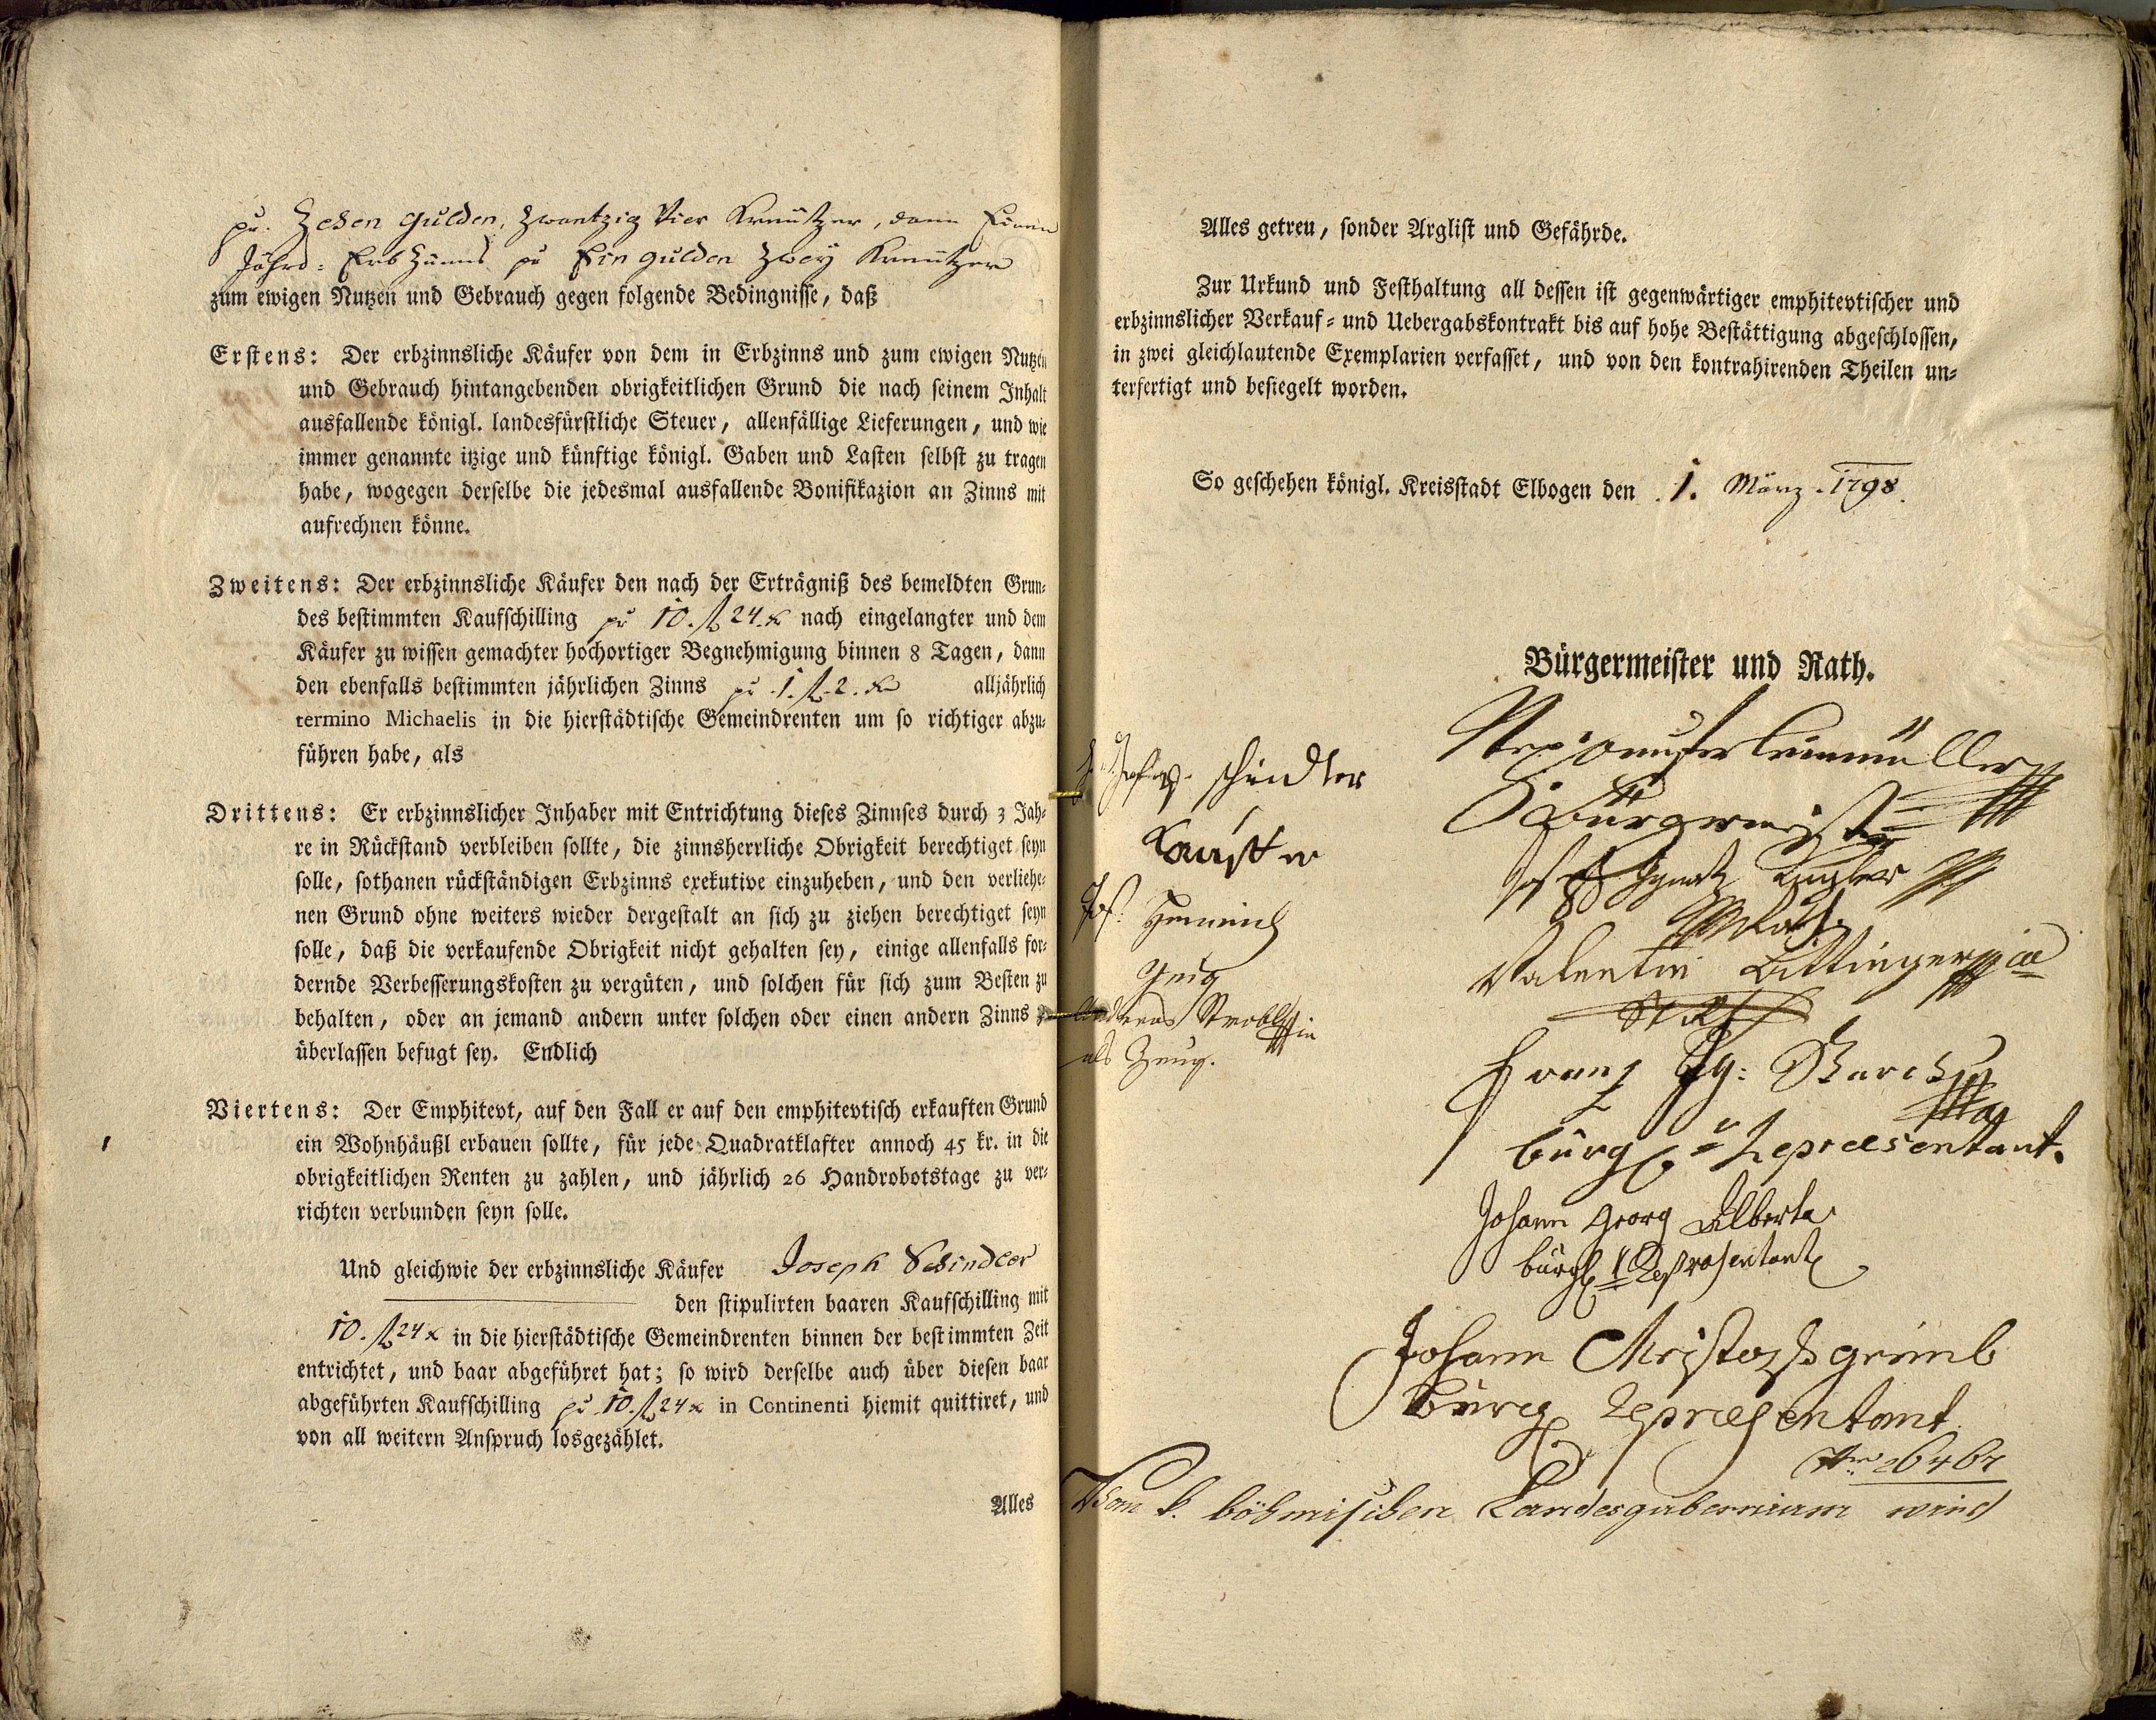 pr. Zehen gulden, Zwantzig Vier Kreutzer, dann Einen
Jährl: Erb Zünns pr Ein gulden Zwey Kreutzer
zum ewigen Nutzen und Gebrauch gegen folgende Bedingnisse, daß
Erstens: Der erbzinnsliche Käufer von dem in Erbzinns und zum ewigen Nutzen
und Gebrauch hintangebenden obrigkeitlichen Grund die nach seinem Inhalt
ausfallende königl. landesfürstliche Steuer, allenfällige Lieferungen, und wie
immer genannte itzige und künftige königl. Gaben und Lasten selbst zu tragen
habe, wogegen derselbe die jedesmal ausfallende Bonifikazion an Zinns mit
aufrechnen könne.
Zweitens: Der erbzinnsliche Käufer den nach der Erträgniß des bemeldten Grun-
des bestimmten Kaufschilling pr 10. fl 24. x nach eingelangter und dem
Käufer zu wissen gemachter hochortiger Begnehmigung binnen 8 Tagen, dann
den ebenfalls bestimmten jährlichen Zinns pr 1. fl. 2. xr alljährlich
termino Michaelis in die hierstädtische Gemeindrenten um so richtiger abzu-
führen habe, als
Drittens: Er erbzinnslicher Inhaber mit Entrichtung dieses Zinnses durch 3 Jah-
re in Rückstand verbleiben sollte, die zinnsherrliche Obrigkeit berechtiget seyn
solle, sothanen rückständigen Erbzinns exekutive einzuheben, und den verliehe-
nen Grund ohne weiters wieder dergestalt an sich zu ziehen berechtiget seyn
solle, daß die verkaufende Obrigkeit nicht gehalten sey, einige allenfalls for-
dernde Verbesserungskosten zu vergüten, und solchen für sich zum Besten zu
behalten, oder an jemand andern unter solchen oder einen andern Zinns
überlassen befugt sey. Endlich
Viertens: Der Emphitevt, auf den Fall er auf den emphitevtisch erkauften Grund
ein Wohnhäußl erbauen sollte, für jede Quadratklafter annoch 45 kr. in die
obrigkeitlichen Renten zu zahlen, und jährlich 26 Handrobotstage zu ver-
richten verbunden seyn solle.
Und gleichwie der erbzinnsliche Käufer Joseph Schindler
den stipulirten baaren Kaufschilling mit
10. fl 24 x in die hierstädtische Gemeindrenten binnen der bestimmten Zeit
entrichtet, und baar abgeführet hat; so wird derselbe auch über diesen baar
abgeführten Kaufschilling pr 10. fl 24 x in Continenti hiemit quittiret, und
von all weitern Anspruch losgezählet.
Alles
Alles getreu, sonder Arglist und Gefährde.
Zur Urkund und Festhaltung all dessen ist gegenwärtiger emphitevtischer und
erbzinnslicher Verkauf- und Uebergabskontrakt bis auf hohe Bestättigung abgeschlossen,
in zwei gleichlautende Exemplarien verfasset, und von den kontrahirenden Theilen un-
terfertigt und besiegelt worden.
So geschehen königl. Kreisstadt Elbogen den 1. März 1798.
Bürgermeister und Rath.
Bürgermeister
schindler
Kauffer
Jos: Heinrich
Zeug
Andreas Strobl
als Zeug.
Joseph Ignatz
Rath
Valentin
Franz Ig:
bürgl. Repraesentant.
Johann Georg Alberta
bürgl. Represententant
Johann Christoph
Bürgl Representant
Nr. 26464
Vom k. böhmischen Landesgubernium wird